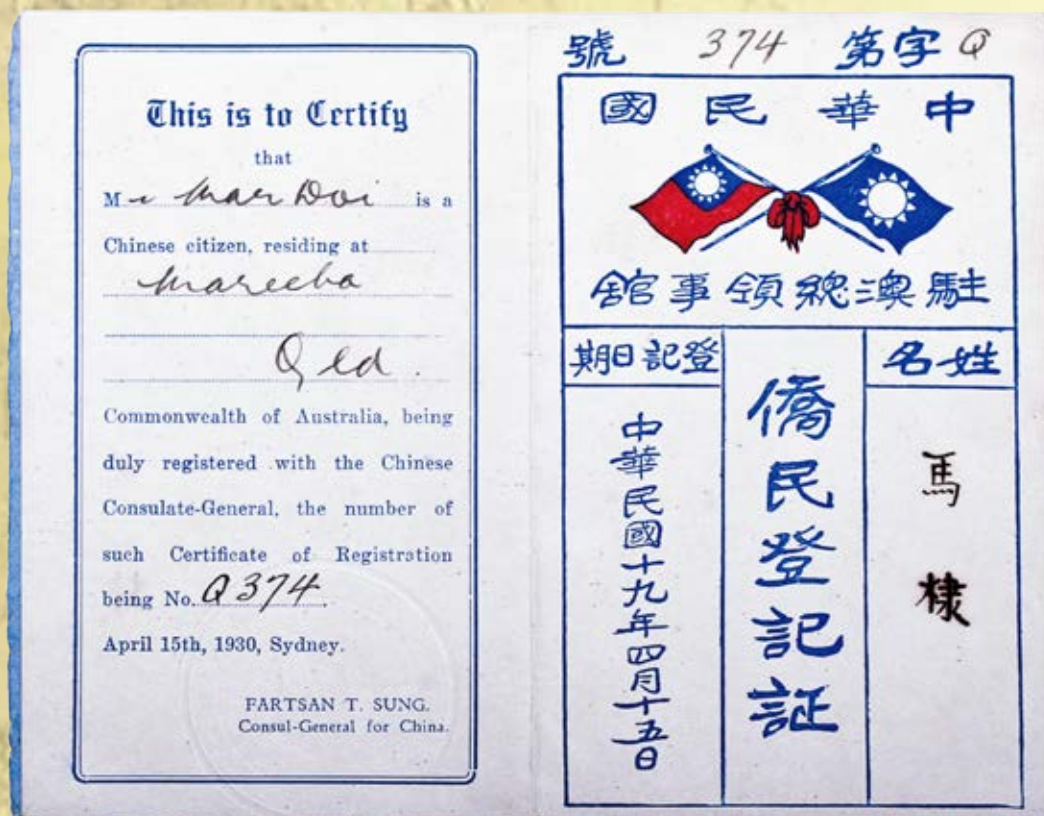 This is to Certify
that
Mr Mar Doi is a
Chinese citizen, residing at
Mareeba
Qld.
Commonwealth of Australia, being
duly registered with the Chinese
Consulate-General, the number of
such Certificate of Registration
being No. Q374.
April 15th, 1930, Sydney.
FARTSAN T. SUNG.
Consul-General for China.
Q字第 374 號
中華民國
駐澳總領事館
姓名
馬棣
僑民登記証
登記日期
中華民國十九年四月十五日